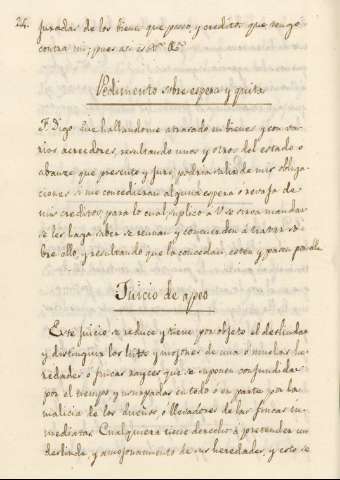 24.
juradas de los bienes que poseo y creditos que tengo
contra mi; pues asi es
Pedimento sobre espera y quita
F. Digo: Que hallandome atrasado en bienes y con va-
rios acreedores, resultando unos y otros del estado o
abanze que presento y juro, podria salir de mis obliga-
ciones si me concedieran alguna espera o revaja de
mis creditos; para lo cual suplico a V se sirva mandar
se les haga saber se reunan y concuerden á tratar so-
bre ello, y resultando que la concedan, esten y pasen por ella
Juicio de apeo
Este juicio se reduce y tiene por objeto el deslindar
y distinguir los sitios y mojones de una ó muchas he-
redades ó fincas rayces que se suponen confundidas
por el tiempo y usurpadas en todo ó en parte por la
malicia de los dueños ó llevadores de las fincas in-
mediatas. Cualquiera tiene derecho á pretender un
deslinde y amojonamiento de sus heredades, y esto se